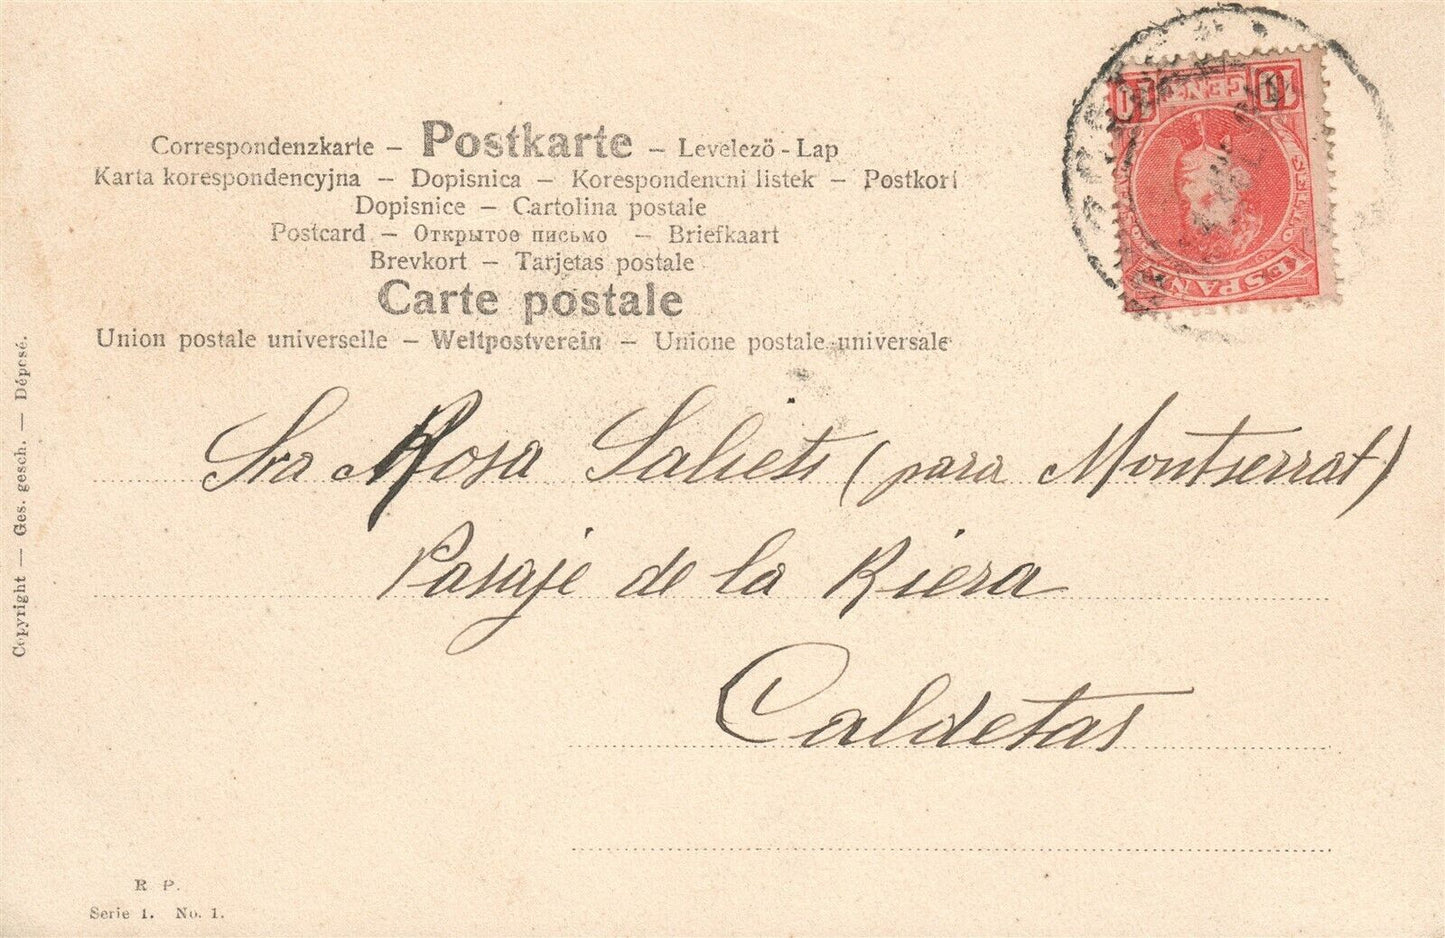 Correspondenzkarte – Postkarte – Levelezö-Lap
Karta korespondencyjna – Dopisnica – Korespondencni listek – Postkort
Dopisnice – Cartolina postale
Postcard – Открытое письмо – Briefkaart
Brevkort – Tarjetas postale
Carte postale
Union postale universelle – Weltpostverein – Unione postale universale
Copyright — Ges. gesch. — Déposé.
10 10
ESPAÑA
Sra Rosa Saliets (para Montserrat)
Pasaje de la Riera
Caldetas
R P.
Serie 1. No. 1.